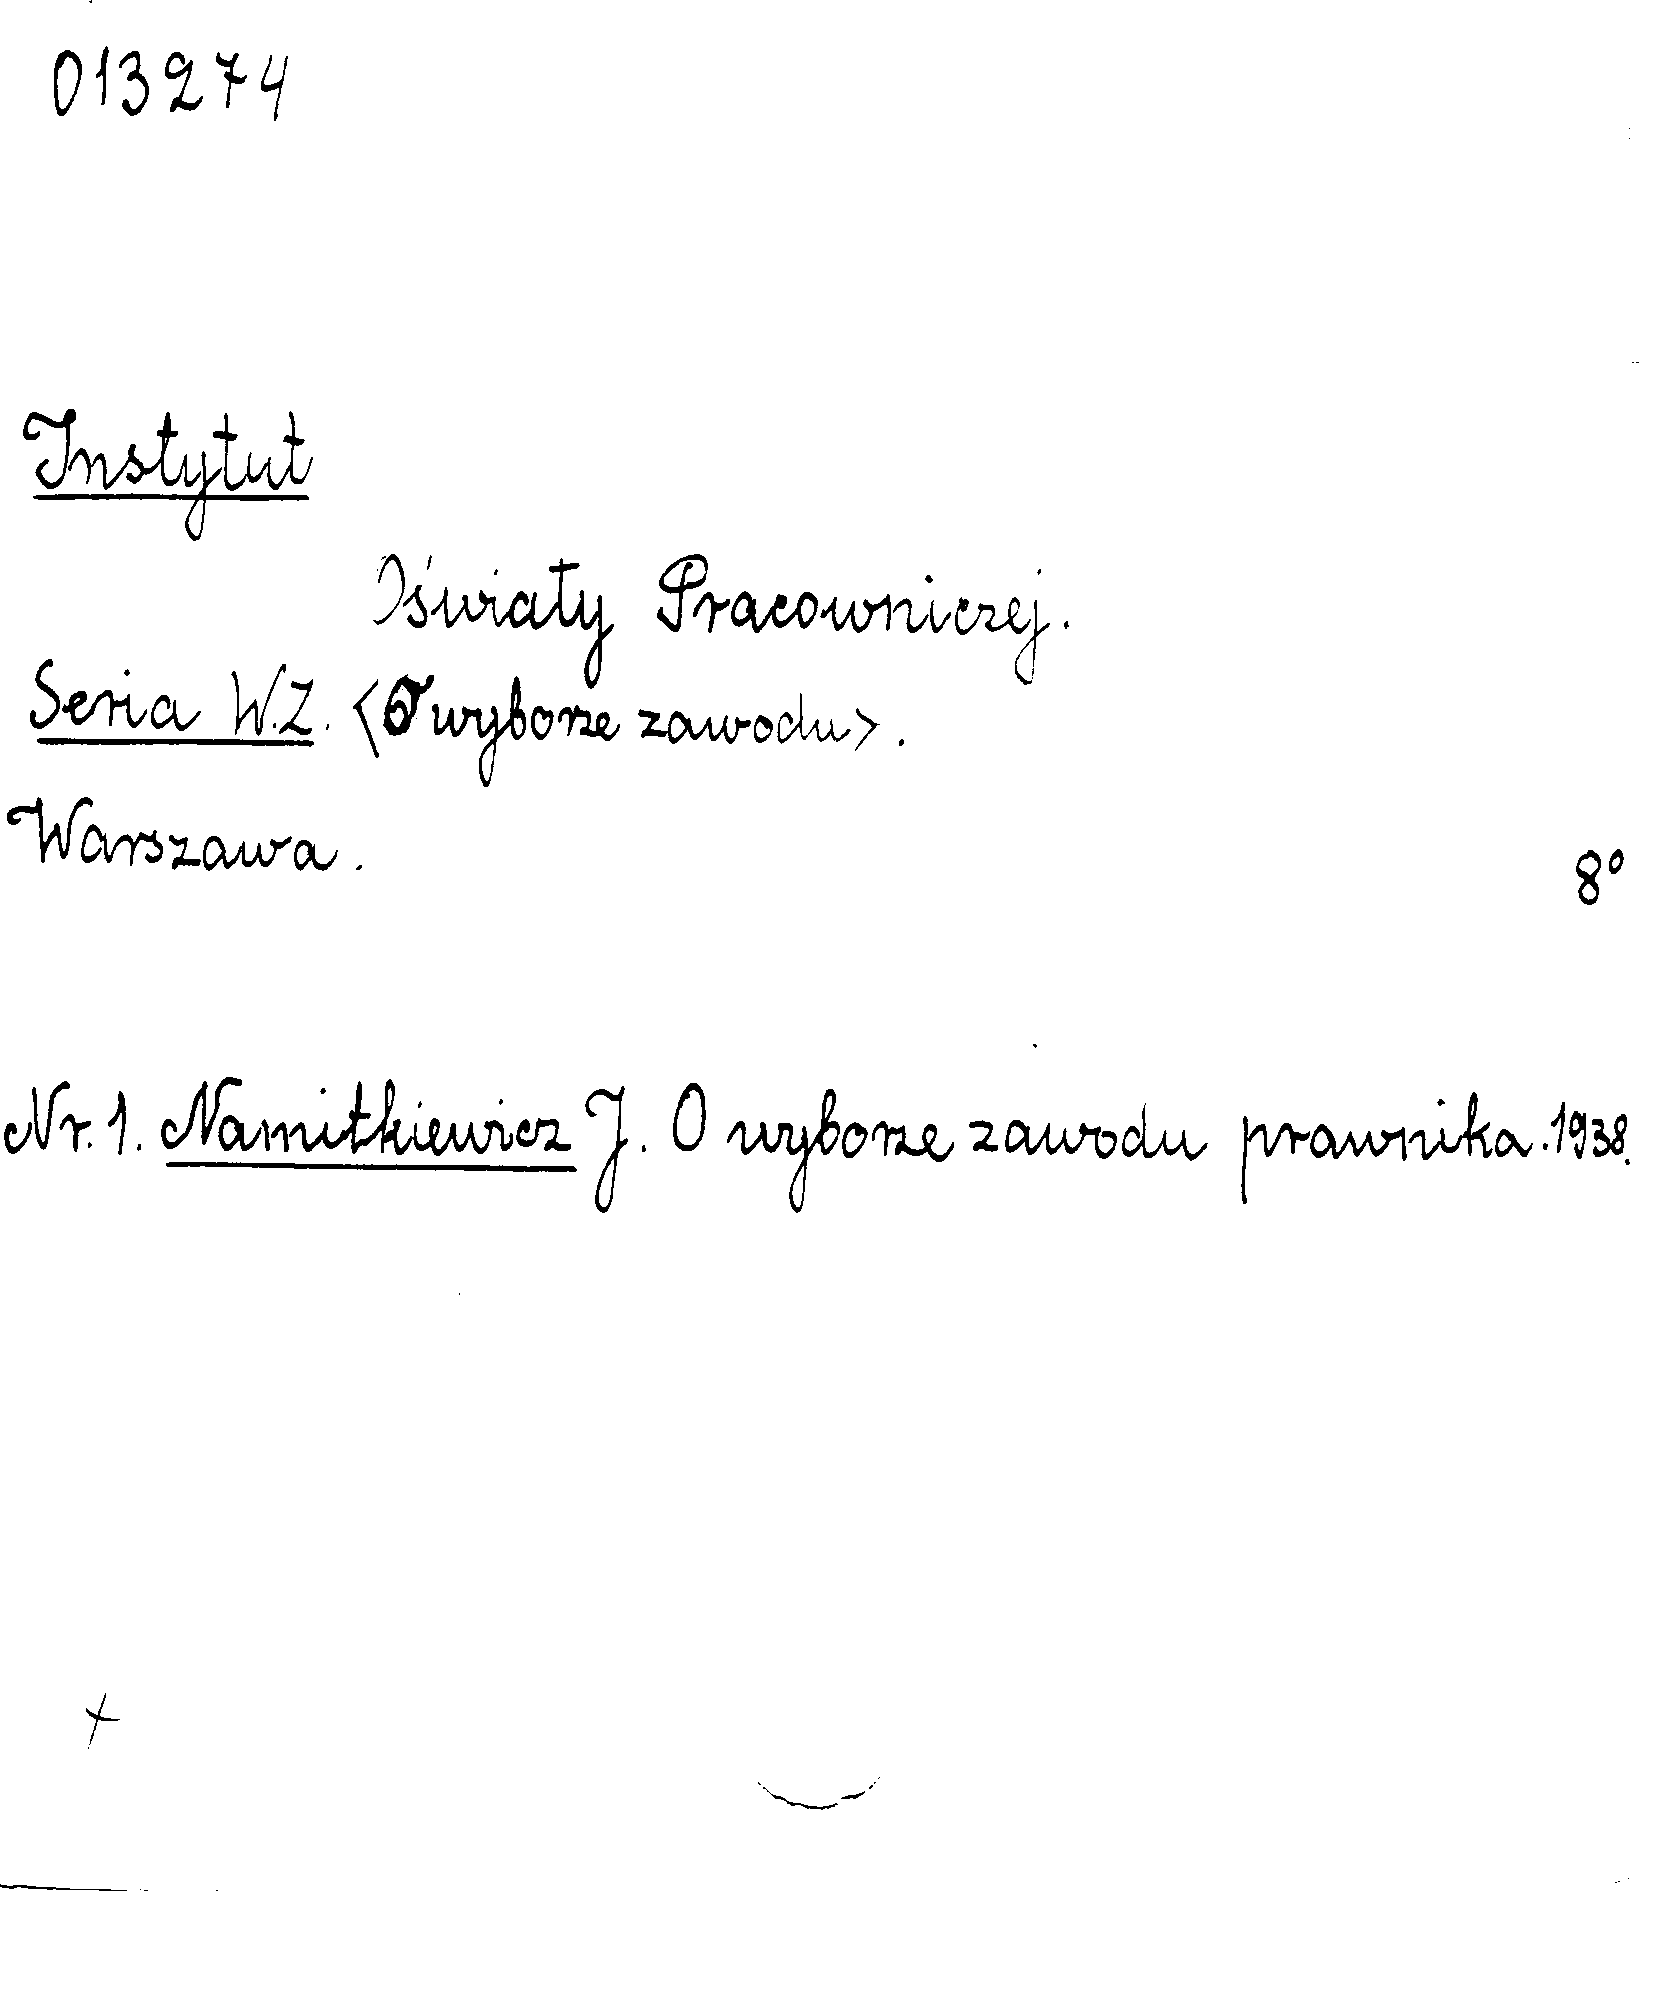 013274
Instytut
Oświaty Pracowniczej.
Seria W.Z. <O wyborze zawodu>.
Warszawa.
8°
Nr. 1. Namitkiewicz J. O wyborze zawodu prawnika. 1938.